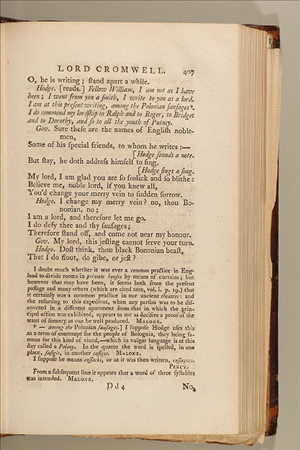 LORD CROMWELL. 407
O, he is writing; ſtand apart a while.
Hodge. [reads.] Fellow William, I am not as I have
been; I went from you a ſmith, I write to you as a lord.
I am at this preſent writing, among the Polonian ſauſages*.
I do commend my lordſhip to Ralph and to Roger, to Bridget
and to Dorothy, and ſo to all the youth of Putney.
Gov. Sure theſe are the names of Engliſh noble-
men,
Some of his ſpecial friends, to whom he writes:—
[Hodge ſounds a note.
But ſtay, he doth addreſs himſelf to ſing.
[Hodge ſings a ſong.
My lord, I am glad you are ſo frolick and ſo blithe:
Believe me, noble lord, if you knew all,
You'd change your merry vein to ſudden ſorrow.
Hodge. I change my merry vein? no, thou Bo-
nonian, no;
I am a lord, and therefore let me go.
I do defy thee and thy ſauſages;
Therefore ſtand off, and come not near my honour.
Gov. My lord, this jeſting cannot ſerve your turn.
Hodge. Doſt think, thou black Bononian beaſt,
That I do flout, do gibe, or jeſt?
I doubt much whether it was ever a common practice in Eng-
land to divide rooms in private houſes by means of curtains; but
however that may have been, it ſeems both from the preſent
paſſage and many others (which are cited ante, vol. i. p. 19.) that
it certainly was a common practice in our ancient theatres: and
the reſorting to this expedient, when any perſon was to be diſ-
covered in a different apartment from that in which the prin-
cipal action was exhibited, appears to me as deciſive a proof of the
want of ſcenery as can be well produced. MALONE.
* — among the Polonian ſauſages.] I ſuppoſe Hodge uſes this
as a term of contempt for the people of Bolognia, they being fa-
mous for this kind of viand,—which in vulgar language is at this
day called a Polony. In the quarto the word is ſpelled, in one
place, ſaſigis, in another caſiges. MALONE.
I ſuppoſe he means caſſocks, or as it was then written,
PERCY.
From a ſubſequent line it appears that a word of three ſyllables
was intended. MALONE.
D d 4 No,